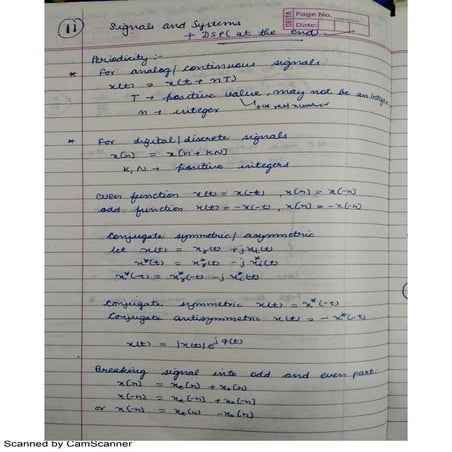 11
Signals and Systems
+ DSP (at the end)
DELTA Page No.
Date:
Periodicity:-
* For analog/continuous signals
x(t) = x(t + nT)
T → positive value, may not be an integer
n → integer
+ve real number
* For digital/discrete signals
x[n] = x[n + KN]
K, N → positive integers
even function - x(t) = x(-t), x[n] = x[-n]
odd function x(t) = -x(-t), x[n] = -x[-n]
Conjugate symmetric/asymmetric
let x(t) = xr(t) + jxi(t)
x*(t) = xr*(t) - j xi*(t)
x*(-t) = xr*(-t) - j xi*(-t)
Conjugate symmetric x(t) = x*(-t)
Conjugate antisymmetric x(t) = - x*(-t)
x(t) = |x(t)| e^jφ(t)
Breaking signal into odd and even part.
x[n] = xe[n] + xo[n]
x[-n] = xe[-n] + xo[-n]
or x[-n] = xe[n] - xo[n]
Scanned by CamScanner